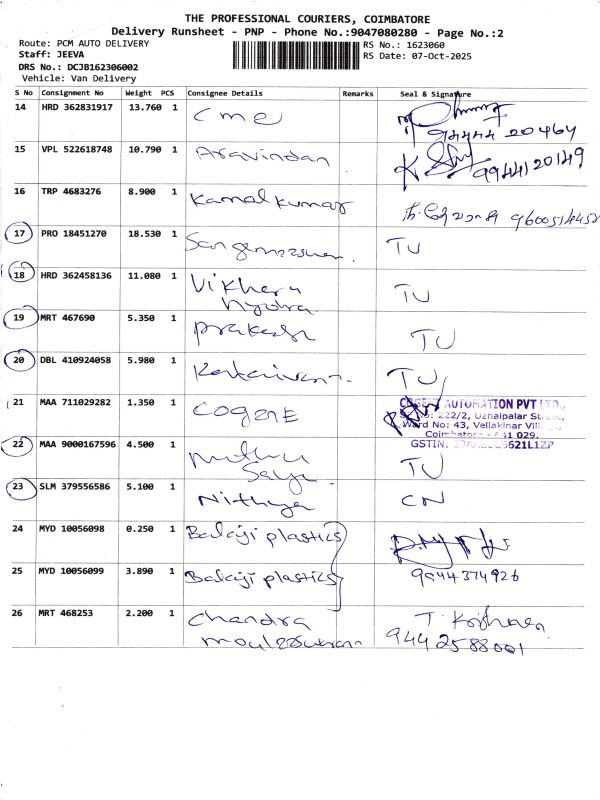 THE PROFESSIONAL COURIERS, COIMBATORE
Delivery Runsheet - PNP - Phone No.:9047080280 - Page No.:2
Route: PCM AUTO DELIVERY
Staff: JEEVA
DRS No.: DCJB162306002
Vehicle: Van Delivery
RS No.: 1623060
RS Date: 07-Oct-2025
S No Consignment No Weight PCS Consignee Details Remarks Seal & Signature
14 HRD 362831917 13.760 1 CME 94444 20464
15 VPL 522618748 10.790 1 Aravindan 9944120149
16 TRP 4683276 8.900 1 Kamal kumar
17 PRO 18451270 18.530 1 TU
18 HRD 362458136 11.080 1 TU
19 MRT 467690 5.350 1 Prakash TU
20 DBL 410924058 5.980 1 TU
21 MAA 711029282 1.350 1 COGENE
COGENT AUTOMATION PVT LTD.,
222/2, Uzhalpalar Street,
Ward No: 43, Vellakinar
Coimbatore - 641 029.
GSTIN:
22 MAA 9000167596 4.500 1 Muthu TU
23 SLM 379556586 5.100 1 Nithya CN
24 MYD 10056098 0.250 1 Balaji plastics
25 MYD 10056099 3.890 1 Balaji plastics 9944374926
26 MRT 468253 2.200 1 Chandra
T. Krishnan
9442588001